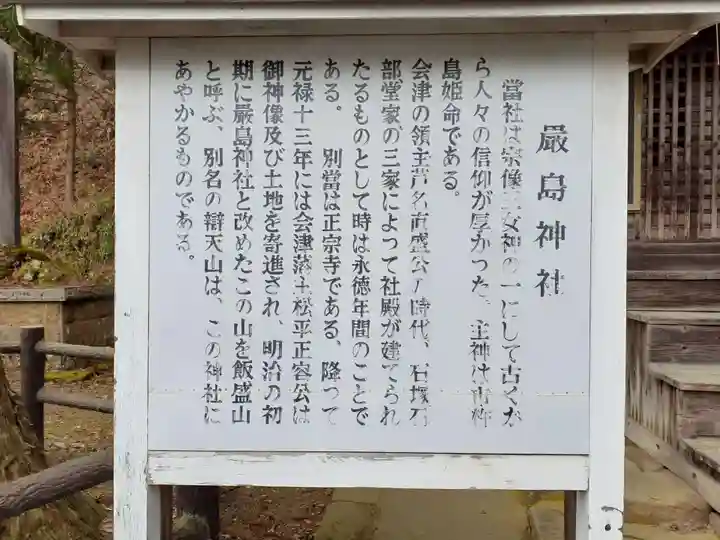 厳島神社
當社は宗像三女神の一にして古くか
ら人々の信仰が厚かった。主神は市杵
島姫命である。
会津の領主芦名直盛公の時代、石塚石
部堂家の三家によって社殿が建てられ
たるものとして時は永徳年間のことで
ある。 別當は正宗寺である、降って
元禄十三年には会津藩主松平正容公は
御神像及び土地を寄進され、明治の初
期に厳島神社と改めたこの山を飯盛山
と呼ぶ、別名の辯天山は、この神社に
あやかるものである。